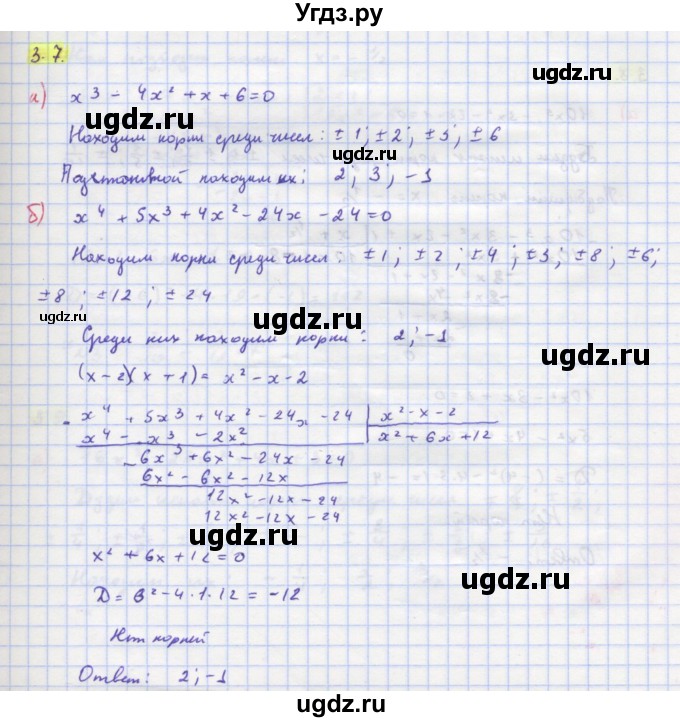 Угдз.ру
3.7.
а) x³ - 4x² + x + 6 = 0
ugdz.ru
Находим корни среди чисел: ±1; ±2; ±3; ±6
ugdz.ru
Подстановкой находим их: 2; 3; -1
б) x⁴ + 5x³ + 4x² - 24x - 24 = 0
ugdz.ru
Находим корни среди чисел: ±1; ±2; ±4; ±3; ±8; ±6;
±8; ±12; ±24
ugdz.ru ugdz.ru
Среди них находим корни: 2; -1
ugdz.ru
(x - 2)(x + 1) = x² - x - 2
x⁴ + 5x³ + 4x² - 24x - 24 | x² - x - 2
x⁴ - x³ - 2x² | x² + 6x + 12
ugdz.ru
6x³ + 6x² - 24x - 24
6x² - 6x² - 12x
12x² - 12x - 24
12x² - 12x - 24
ugdz.ru
x² + 6x + 12 = 0
ugdz.ru
D = 6² - 4·1·12 = -12
ugdz.ru
Нет корней
Ответ: 2; -1
ugdz.ru
ugdz.ru